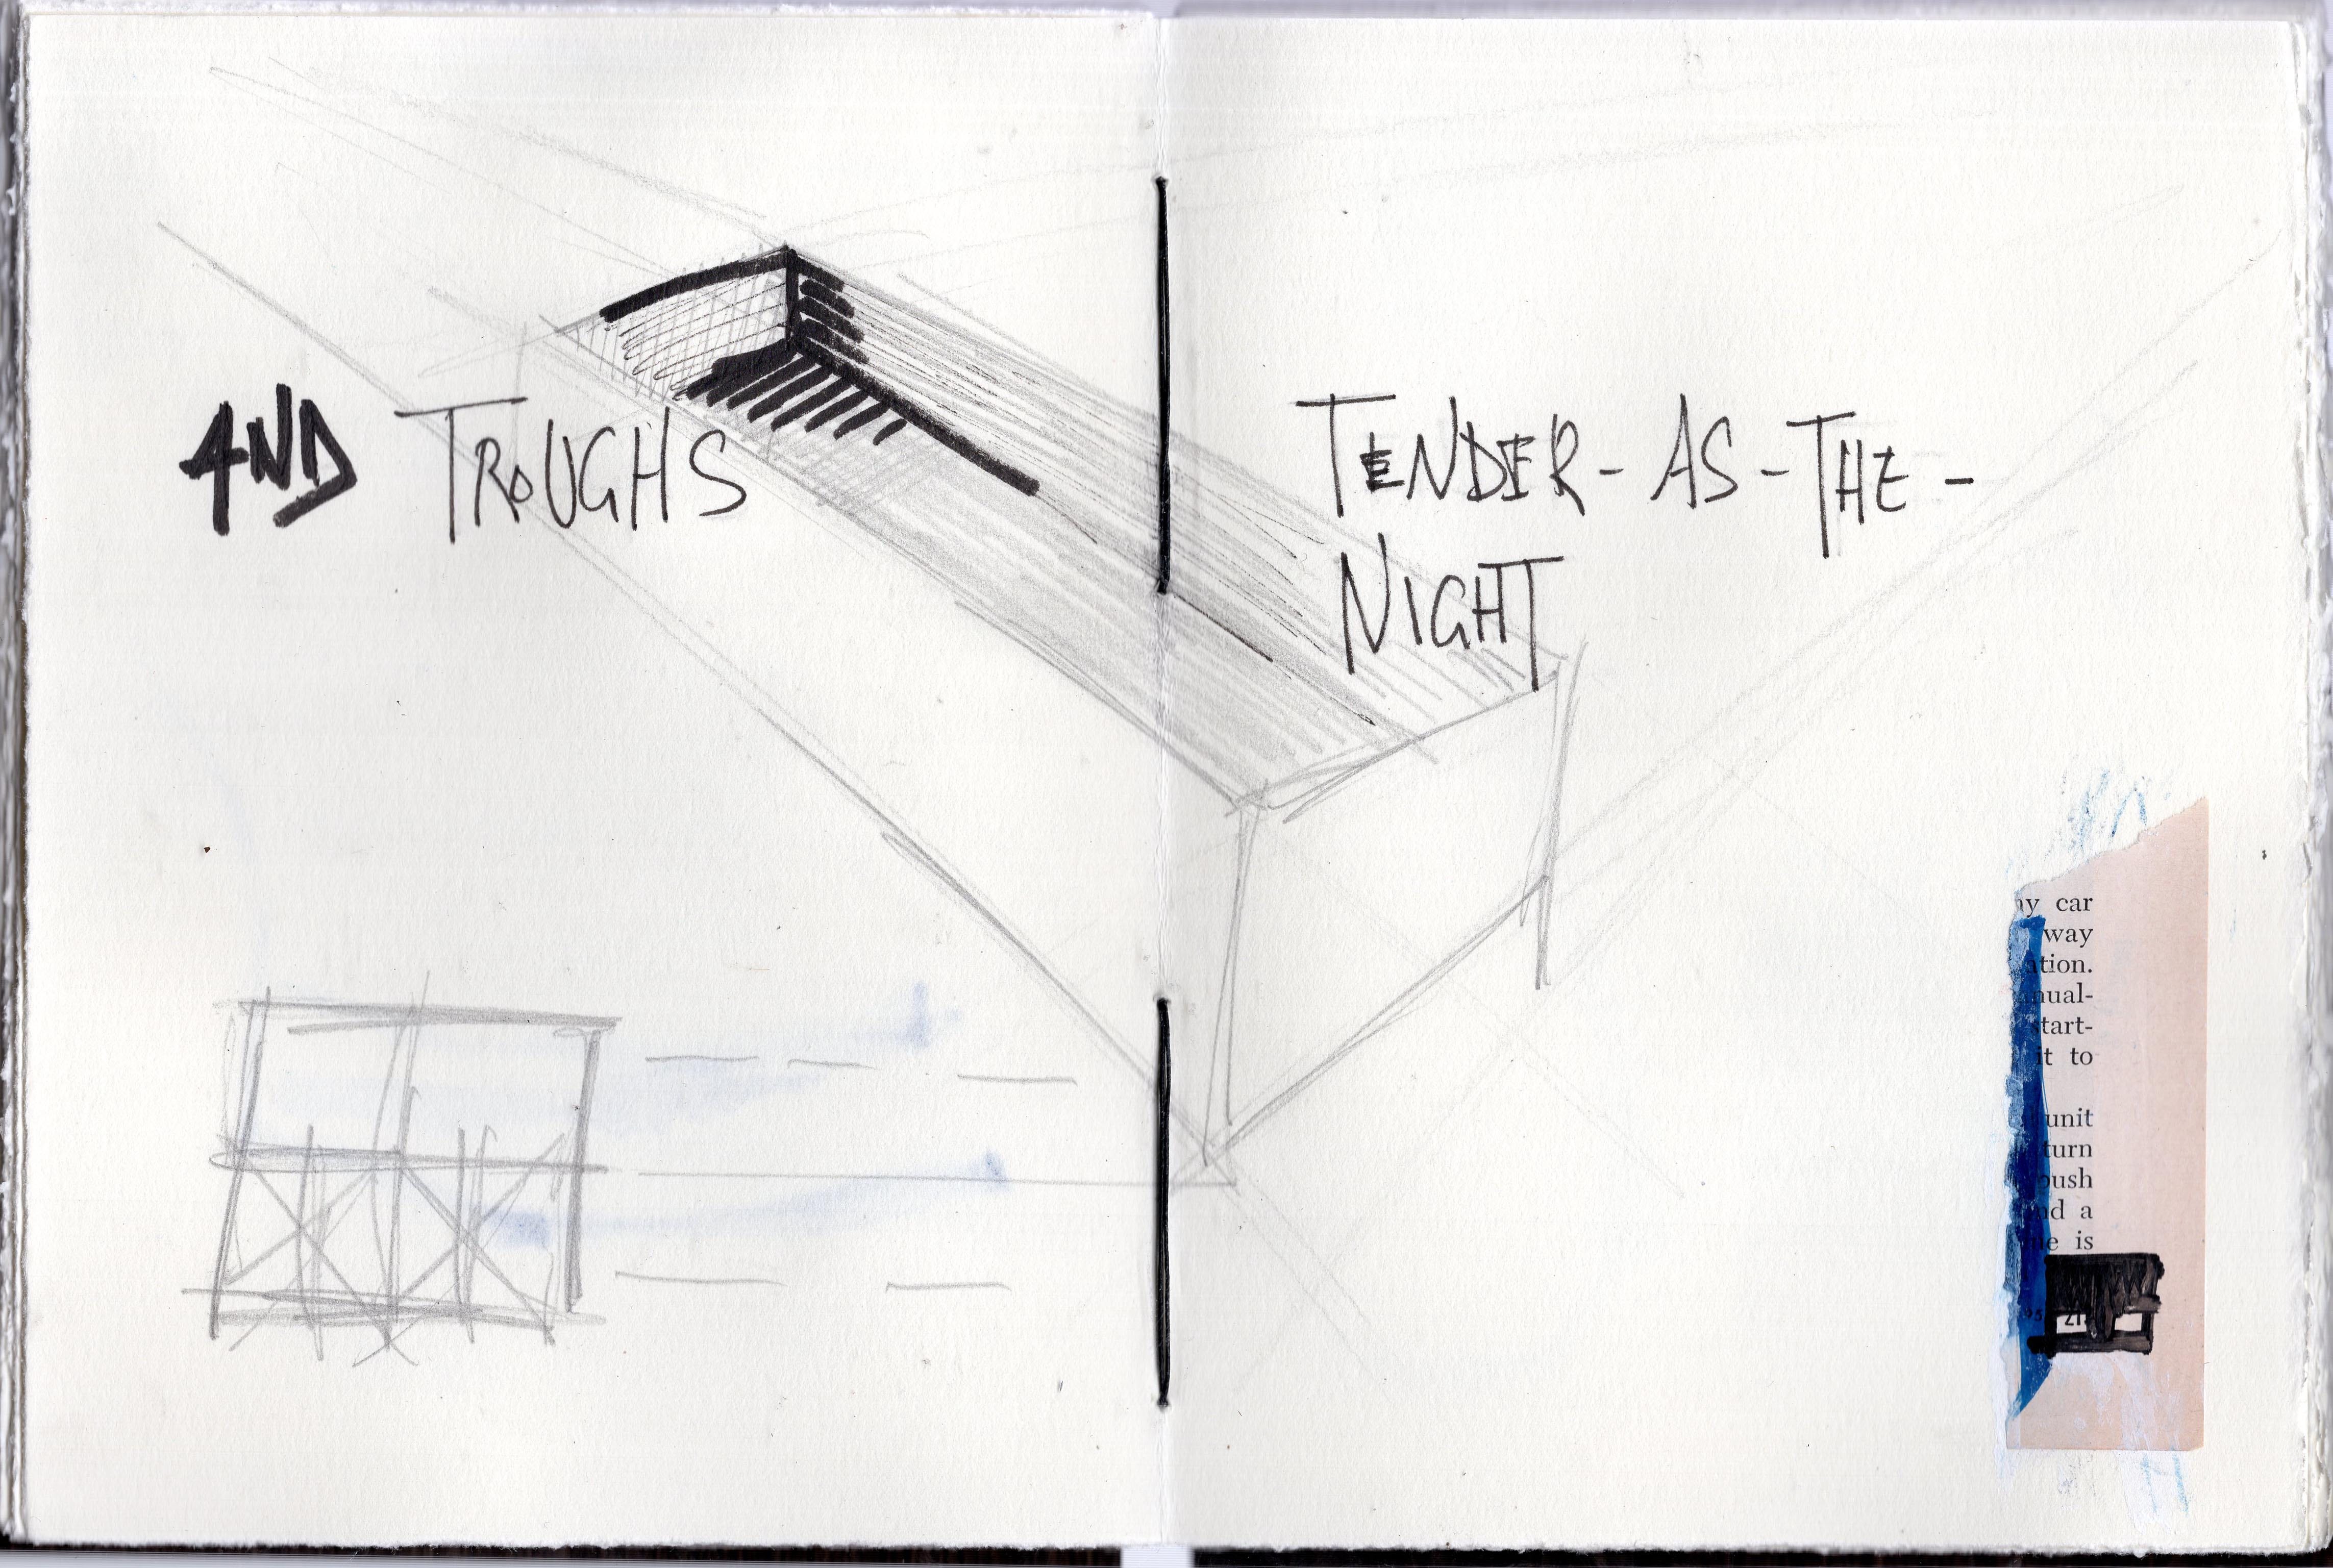 AND TROUGHS
TENDER-AS-THE-
NIGHT
car
way
ation.
nual-
start-
it to
unit
turn
push
and a
is